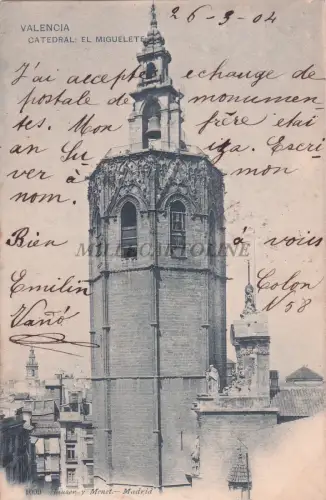 VALENCIA
CATEDRAL: EL MIGUELETE
26-9-04
J'ai accepté echange de
postale de monumen-
tes. Mon frére etai
an Su Escri
ver à mon
nom.
Rien à vois
Emilin Colon
Vañó Nº 58
MILLECARTOLINE
Hauser y Menet.- Madrid